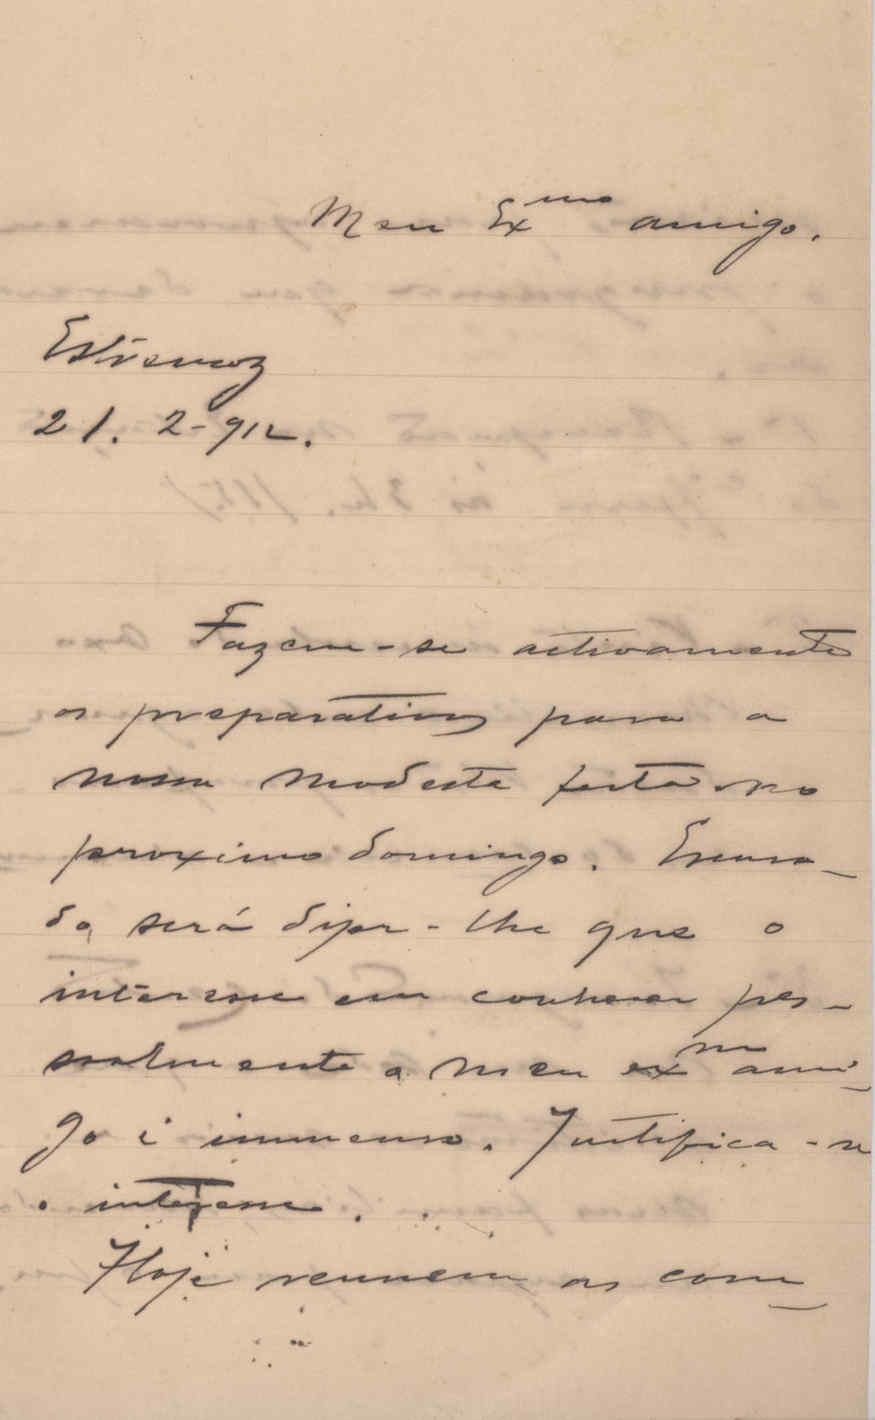 Meu Exmo amigo.
Estremoz
21. 2-912.
Fazem-se activamente
os preparativos para a
nossa modesta festa no
proximo domingo. Escusa-
do será dizer-lhe que o
interesse em conhecer pes-
soalmente o meu exmo ami-
go é immenso. Justifica-se
o interesse.
Hoje reunem as com-